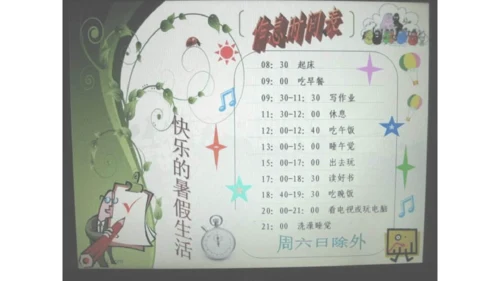 作息时间表
08：30 起床
09：00 吃早餐
09：30-11：30 写作业
11：30-12：00 休息
12：00-12：40 吃午饭
13：00-15：00 睡午觉
15：00-17：00 出去玩
17：00-18：30 读好书
18：40-19：30 吃晚饭
20：00-21：00 看电视或玩电脑
21：00 洗澡睡觉
周六日除外
快乐的暑假生活